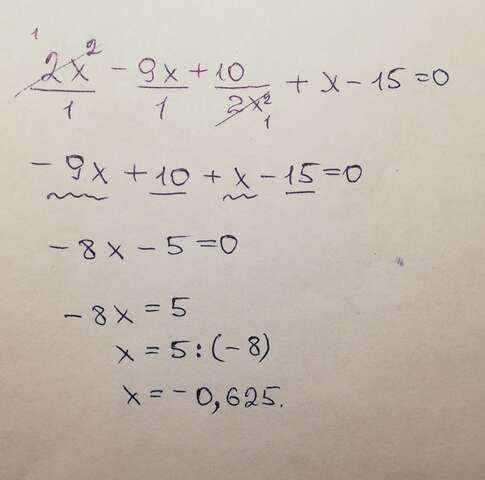 1
2x² - 9x + 10 + x - 15 = 0
1 1 2x² 1
- 9x + 10 + x - 15 = 0
- 8x - 5 = 0
- 8x = 5
x = 5 : (- 8)
x = - 0,625.